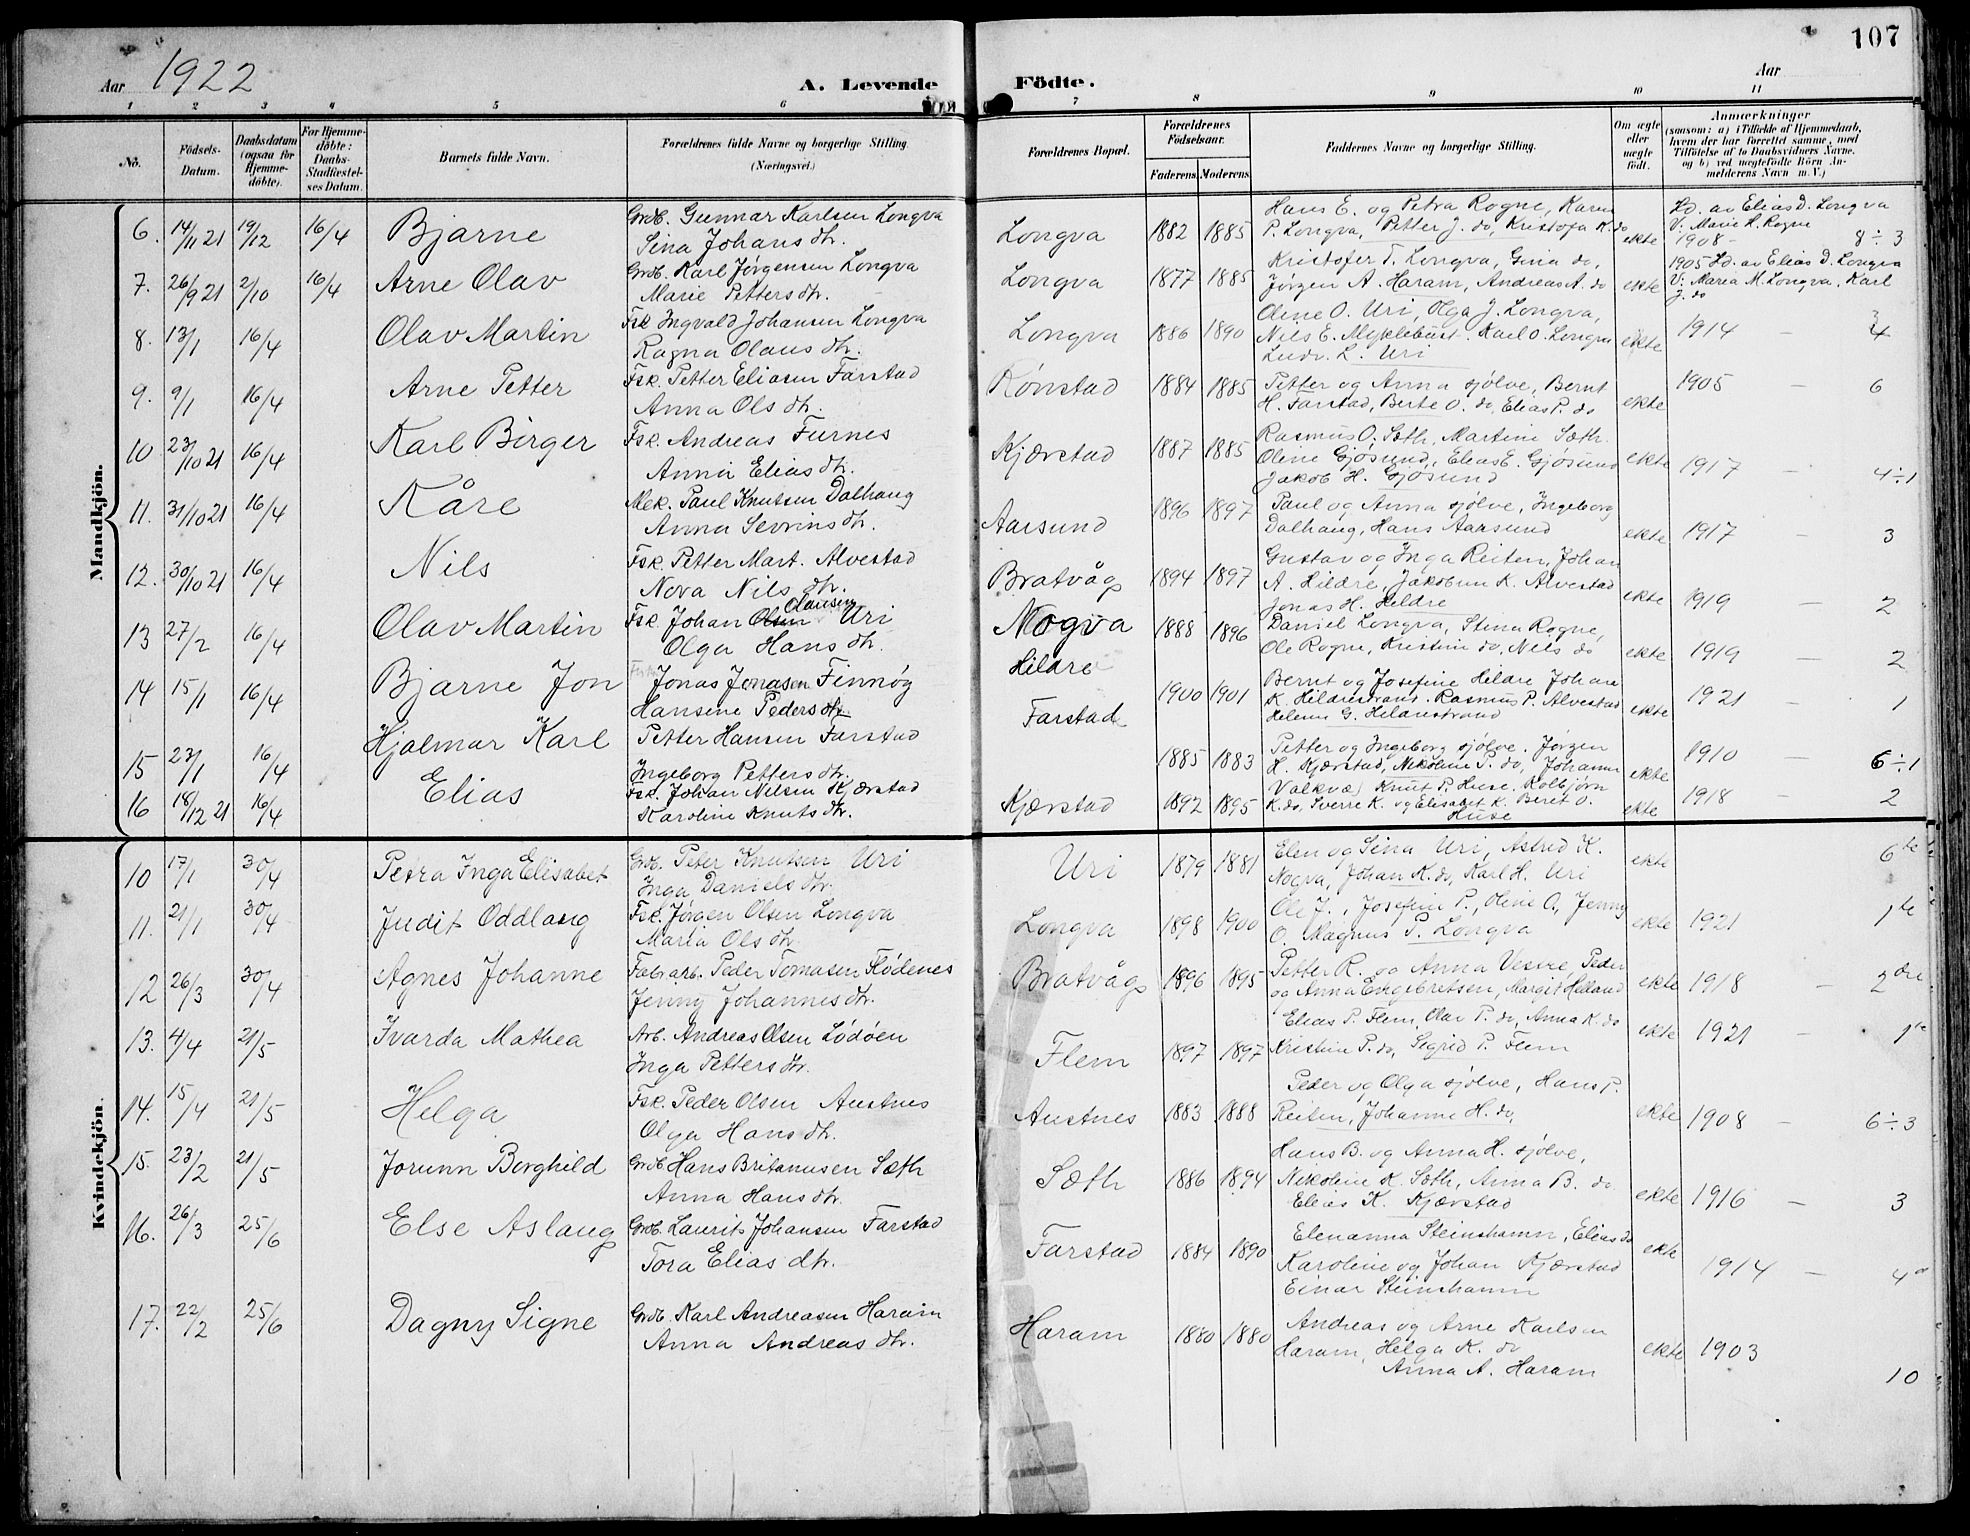 107
Aar 1922
A. Levende Födte.
Aar
1 2 3 4 5 6 7 8 9 10 11
No.
Födsels-Datum.
Daabsdatum (ogsaa for Hjemme-døbte).
For Hjemme-döbte: Daabs-Stadfæstel-ses Datum.
Barnets fulde Navn.
Forældrenes fulde Navne og borgerlige Stilling (Næringsvei.)
Forældrenes Bopæl.
Forældrenes Födselsaar.
Faderens. Moderens.
Faddernes Navne og borgerlige Stilling.
Om ægte eller uægte födt.
Anmærkninger
(saasom: a) i Tilfælde af Hjemmedaab, hvem der har forrettet samme, med Tilföielse af to Daabsvidners Navne, og b) ved uægtefödte Börn An-melderens Navn m. V.)
Mandkjön.
6. 14/11 21 19/12 16/4 Bjarne Grdb. Gunnar Karlsen Longva
Sina Johans dtr. Longva 1882 1885 Hans E. og Petra Rogne, Karen
P. Longva, Petter J. do, Kristofa K. do ekte Hd. av Elias D. Longva
V: Marie K. Rogne
1908 - 8÷3
7. 26/9 21 2/10 16/4 Arne Olav Grdb. Karl Jørgensen Longva
Marie Petters dtr. Longva 1877 1885 Kristofer T. Longva, Gina do,
Jørgen A. Haram, Andreas A. do ekte 1905 Hd. av Elias D. Longva
V: Maria M. Longva, Karl
J. do
8. 13/1 16/4 Olav Martin Fsk Ingvald Johansen Longva
Ragna Olaus dtr. Longva 1886 1890 Oline O. Uri, Olga J. Longva,
Nils E. Myklebust. Karl O. Longva
Ludv. L. Uri ekte 1914 - 4
9. 9/1 16/4 Arne Petter Fsk. Petter Eliasen Farstad
Anna Ols dtr. Rønstad 1884 1885 Petter og Anna sjølve, Bernt
H. Farstad, Berte O. do, Elias P. do ekte 1905 - 6
10 23/10 21 16/4 Karl Birger Fsk. Andreas Furnes
Anna Elias dtr. Kjærstad 1887 1885 Rasmus O. Sæth, Martine Sæth.
Oline Gjøsund, Elias E. Gjøsund
Jakob H. Gjøsund ekte 1917 - 4÷1
11. 31/10 21 16/4 Kåre Mek. Paul Knutsen Dalhaug
Anna Sevrins dtr. Aarsund 1896 1897 Paul og Anna sjølve, Ingeborg
Dalhaug, Hans Aarsund ekte 1917 - 3
12. 30/10 21 16/4 Nils Fsk. Petter Mart. Alvestad
Nova Nils dtr. Bratvåg 1894 1897 Gustav og Inga Reiten, Johan
A. Hildre, Jakobine K. Alvestad
Jonas H. Hildre ekte 1919 - 2
13 27/2 16/4 Olav Martin Fsk. Johan Olsen Olausen Uri
Olga Hans dtr. Nogva 1888 1896 Daniel Longva, Stina Rogne,
Ole Rogne, Kristine do, Nils do ekte 1919 - 2
14 15/1 16/4 Bjarne Jon Jonas Jonasen Finnøy
Hansine Peders dtr Hildre 1900 1901 Bernt og Josefine Hildre Johan
K. Hildrestrand. Rasmus P. Alvestad
Helene G. Hildrestrand ekte 1921 - 1
15 23/1 16/4 Hjalmar Karl Petter Hansen Farstad
Ingeborg Petters dtr. Farstad 1885 1883 Petter og Ingeborg sjølve. Jørgen
H. Kjærstad, Nikoline P. do, Johanne ekte 1910 - 6÷1
16 18/12 21 16/4 Elias Fsk. Johan Nilsen Kjærstad
Karoline Knuts dtr. Kjærstad 1892 1895 Valkvæ, Knut P. Huse, Kolbjørn
K. do, Sverre K. og Elisabet K. Beret O.
Huse ekte 1918 - 2
Kvindekjön.
10 17/1 30/4 Petra Inga Elisabet Grdb. Peter Knutsen Uri
Inga Daniels dtr. Uri 1879 1881 Elen og Sina Uri, Astrid K.
Nogva, Johan K. do, Karl H. Uri ekte 6te
11. 21/1 30/4 Judit Oddlaug Fsk. Jørgen Olsen Longva
Maria Ols dtr. Longva 1898 1900 Ole J., Josefine P., Oline O, Jenny
O. Magnus P. Longva ekte 1921 1te
12 26/3 30/4 Agnes Johanne Fabjarb. Peder Tomasen Flødenes
Jenny Johannes dtr. Bratvåg 1896 1895 Petter R. og Anna Vestre, Peder
og Anna Engebretsen, Margit Helland ekte 1918 - 2dre
13. 4/4 21/5 Ivarda Mathea Arb. Andreas Olsen Lødøen
Inga Petters dtr. Flem 1897 1897 Elias P. Flem, Olav P. do, Anna K. do
Kristine P. do, Sigrid P. Flem ekte 1921 - 1te
14. 15/4 21/5 Helga Fsk. Peder Olsen Austnes
Olga Hans dtr. Austnes 1883 1888 Peder og Olga sjølve, Hans P.
Reiten, Johanne H. do, ekte 1908 - 6÷3
15. 23/2 21/5 Jorunn Borghild Grdb Hans Britanusen Sæth
Anna Hans dtr. Sæth 1886 1894 Hans B. og Anna H. sjølve,
Nikoline K. Sæth, Anna B. do
Elias K. Kjærstad ekte 1916 - 3
16. 26/3 25/6 Else Aslaug Grdb. Laurits Johansen Farstad
Tora Elias dtr. Farstad 1884 1890 Elenanna Steinshamn, Elias do
Karoline og Johan Kjærstad
Einar Steinshamn ekte 1914 - 4
17. 22/2 25/6 Dagny Signe Grdb. Karl Andreasen Haram
Anna Andreas dtr. Haram 1880 1880 Andreas og Arne Karlsen
Haram, Helga K. do
Anna A. Haram ekte 1903 10